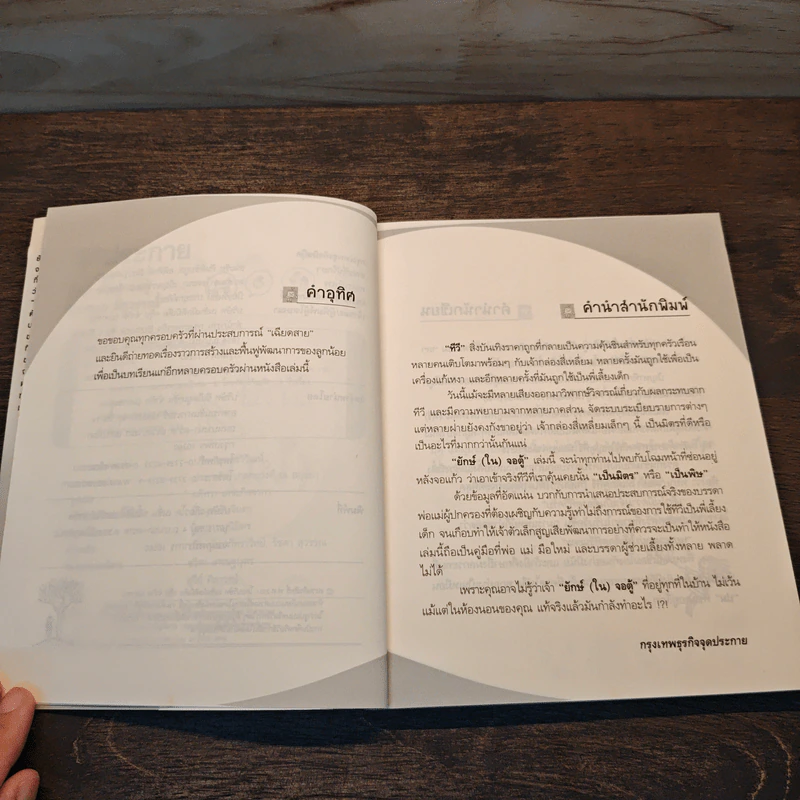 คำอุทิศ
ขอขอบคุณทุกครอบครัวที่ผ่านประสบการณ์ "เฉียดสาย"
และยินดีถ่ายทอดเรื่องราวการสร้างและฟื้นฟูพัฒนาการของลูกน้อย
เพื่อเป็นบทเรียนแก่อีกหลายครอบครัวผ่านหนังสือเล่มนี้
คำนำสำนักพิมพ์
"ทีวี" สิ่งบันเทิงราคาถูกที่กลายเป็นความคุ้นชินสำหรับทุกครัวเรือน
หลายคนเติบโตมาพร้อมๆ กับเจ้ากล่องสี่เหลี่ยม หลายครั้งมันถูกใช้เพื่อเป็น
เครื่องแก้เหงา และอีกหลายครั้งที่มันถูกใช้เป็นพี่เลี้ยงเด็ก
วันนี้แม้จะมีหลายเสียงออกมาวิพากษ์วิจารณ์เกี่ยวกับผลกระทบจาก
ทีวี และมีความพยายามจากหลายภาคส่วน จัดระบบระเบียบรายการต่างๆ
แต่หลายฝ่ายยังคงกังขาอยู่ว่า เจ้ากล่องสี่เหลี่ยมเล็กๆ นี้ เป็นมิตรที่ดีหรือ
เป็นอะไรที่มากกว่านั้นกันแน่
"ยักษ์ (ใน) จอตู้" เล่มนี้ จะนำทุกท่านไปพบกับโฉมหน้าที่ซ่อนอยู่
หลังจอแก้ว ว่าเอาเข้าจริงทีวีที่เราคุ้นเคยนั้น "เป็นมิตร" หรือ "เป็นพิษ"
ด้วยข้อมูลที่อัดแน่น บวกกับการนำเสนอประสบการณ์จริงของบรรดา
พ่อแม่ผู้ปกครองที่ต้องเผชิญกับความรู้เท่าไม่ถึงการณ์ของการใช้ทีวีเป็นพี่เลี้ยง
เด็ก จนเกือบทำให้เจ้าตัวเล็กสูญเสียพัฒนาการอย่างที่ควรจะเป็นทำให้หนังสือ
เล่มนี้ถือเป็นคู่มือที่พ่อ แม่ มือใหม่ และบรรดาผู้ช่วยเลี้ยงทั้งหลาย พลาด
ไม่ได้
เพราะคุณอาจไม่รู้ว่าเจ้า "ยักษ์ (ใน) จอตู้" ที่อยู่ทุกที่ในบ้าน ไม่เว้น
แม้แต่ในห้องนอนของคุณ แท้จริงแล้วมันกำลังทำอะไร !?!
กรุงเทพธุรกิจจุดประกาย